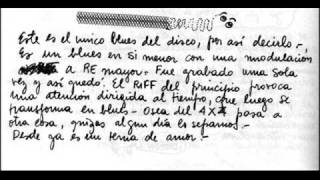 Este es el unico blues del disco, por así decirlo.-,
Es un blues en Si menor con una modulación
a RE mayor.- Fue grabado una sola
vez y así quedó. El RIFF del principio provoca
una atención dirigida al tiempo, que luego se
transforma en blues.- Osea del 4X4 pasa a
otra cosa, quizás algun dia lo sepamos.-
Desde ya es un tema de amor.-